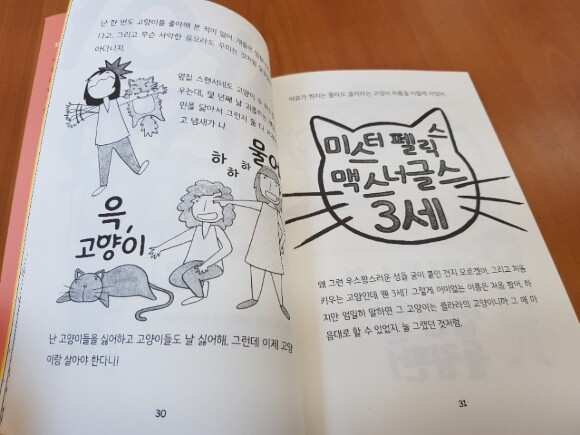 난 한 번도 고양이를 좋아해 본 적이 없어. 개들은
다고, 그리고 무슨 사악한 음모라도 꾸미는 것처럼
아다니지.
옆집 스탠서네도 고양이 두
우는데, 몇 년째 날 괴롭히고
인을 닮아서 그런지 둘 다
고 냄새가 나
물어
하 하 하
윽,
고양이
난 고양이들을 싫어하고 고양이들도 날 싫어해. 그런데 이제 고양
이랑 살아야 한다니!
30
고양이 이름을 이렇게 지었어.
미스터 펠릭스
맥스너글스
3세
왜 그런 우스꽝스러운 성을 굳이 붙인 건지 모르겠어. 그리고 처음
키우는 고양인데, 웬 3세? 그렇게 어이없는 이름은 처음 봤어. 하
지만 엄밀히 말하면 그 고양이는 클라라의 고양이니까 그 애 마
음대로 할 수 있었지. 늘 그랬던 것처럼.
31